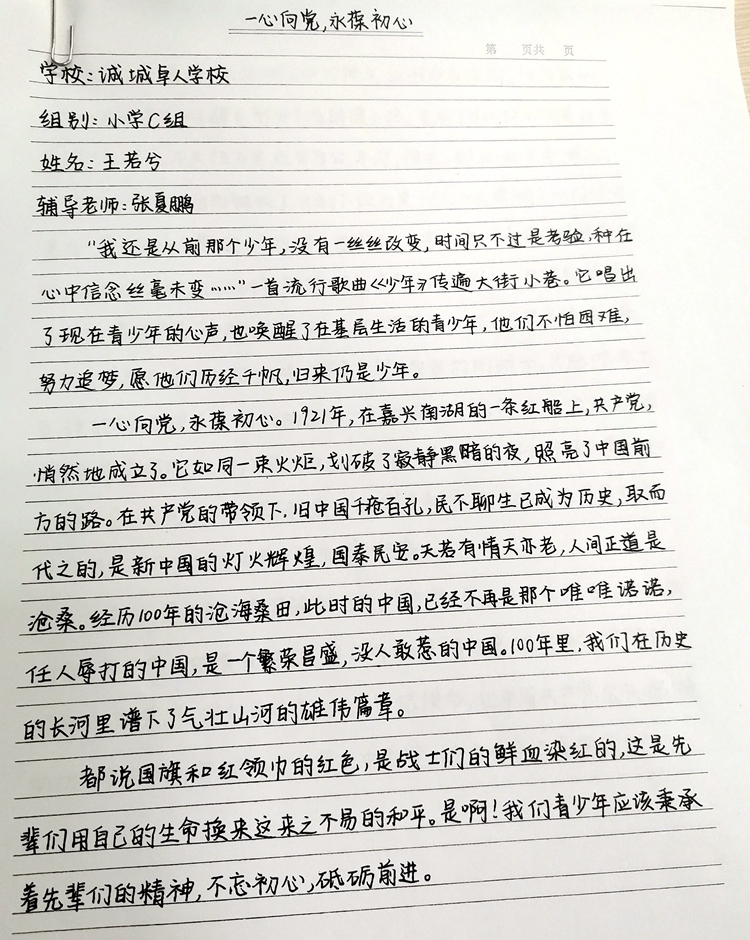 一心向党,永葆初心
第 页共 页
学校:诚城卓人学校
组别:小学C组
姓名:王若兮
辅导老师:张夏鹏
“我还是从前那个少年,没有一丝丝改变,时间只不过是考验,种在
心中信念丝毫未变……”一首流行歌曲《少年》传遍大街小巷。它唱出
了现在青少年的心声,也唤醒了在基层生活的青少年,他们不怕困难,
努力追梦,愿他们历经千帆,归来仍是少年。
一心向党,永葆初心。1921年,在嘉兴南湖的一条红船上,共产党,
悄然地成立了。它如同一束火炬,划破了寂静黑暗的夜,照亮了中国前
方的路。在共产党的带领下,旧中国千疮百孔,民不聊生已成为历史,取而
代之的,是新中国的灯火辉煌,国泰民安。天若有情天亦老,人间正道是
沧桑。经历100年的沧海桑田,此时的中国,已经不再是那个唯唯诺诺,
任人辱打的中国,是一个繁荣昌盛,没人敢惹的中国。100年里,我们在历史
的长河里谱下了气壮山河的雄伟篇章。
都说国旗和红领巾的红色,是战士们的鲜血染红的,这是先
辈们用自己的生命换来这来之不易的和平。是啊!我们青少年应该秉承
着先辈们的精神,不忘初心,砥砺前进。